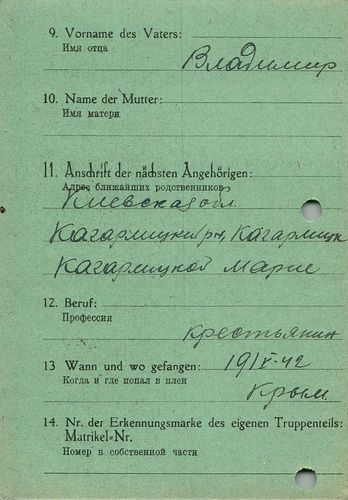 9. Vorname des Vaters:
Имя отца
Владимир
10. Name der Mutter:
Имя матери
11. Anschrift der nächsten Angehörigen:
Адрес ближайших родственников
Киевская обл.
Кагарлицкий рн, Кагарлицк
Кагарлицкой Марие
12. Beruf:
Профессия
крестьянин
13 Wann und wo gefangen:
19/V-42
Когда и где попал в плен
Крым
14. Nr. der Erkennungsmarke des eigenen Truppenteils:
Matrikel-Nr.
Номер в собственной части